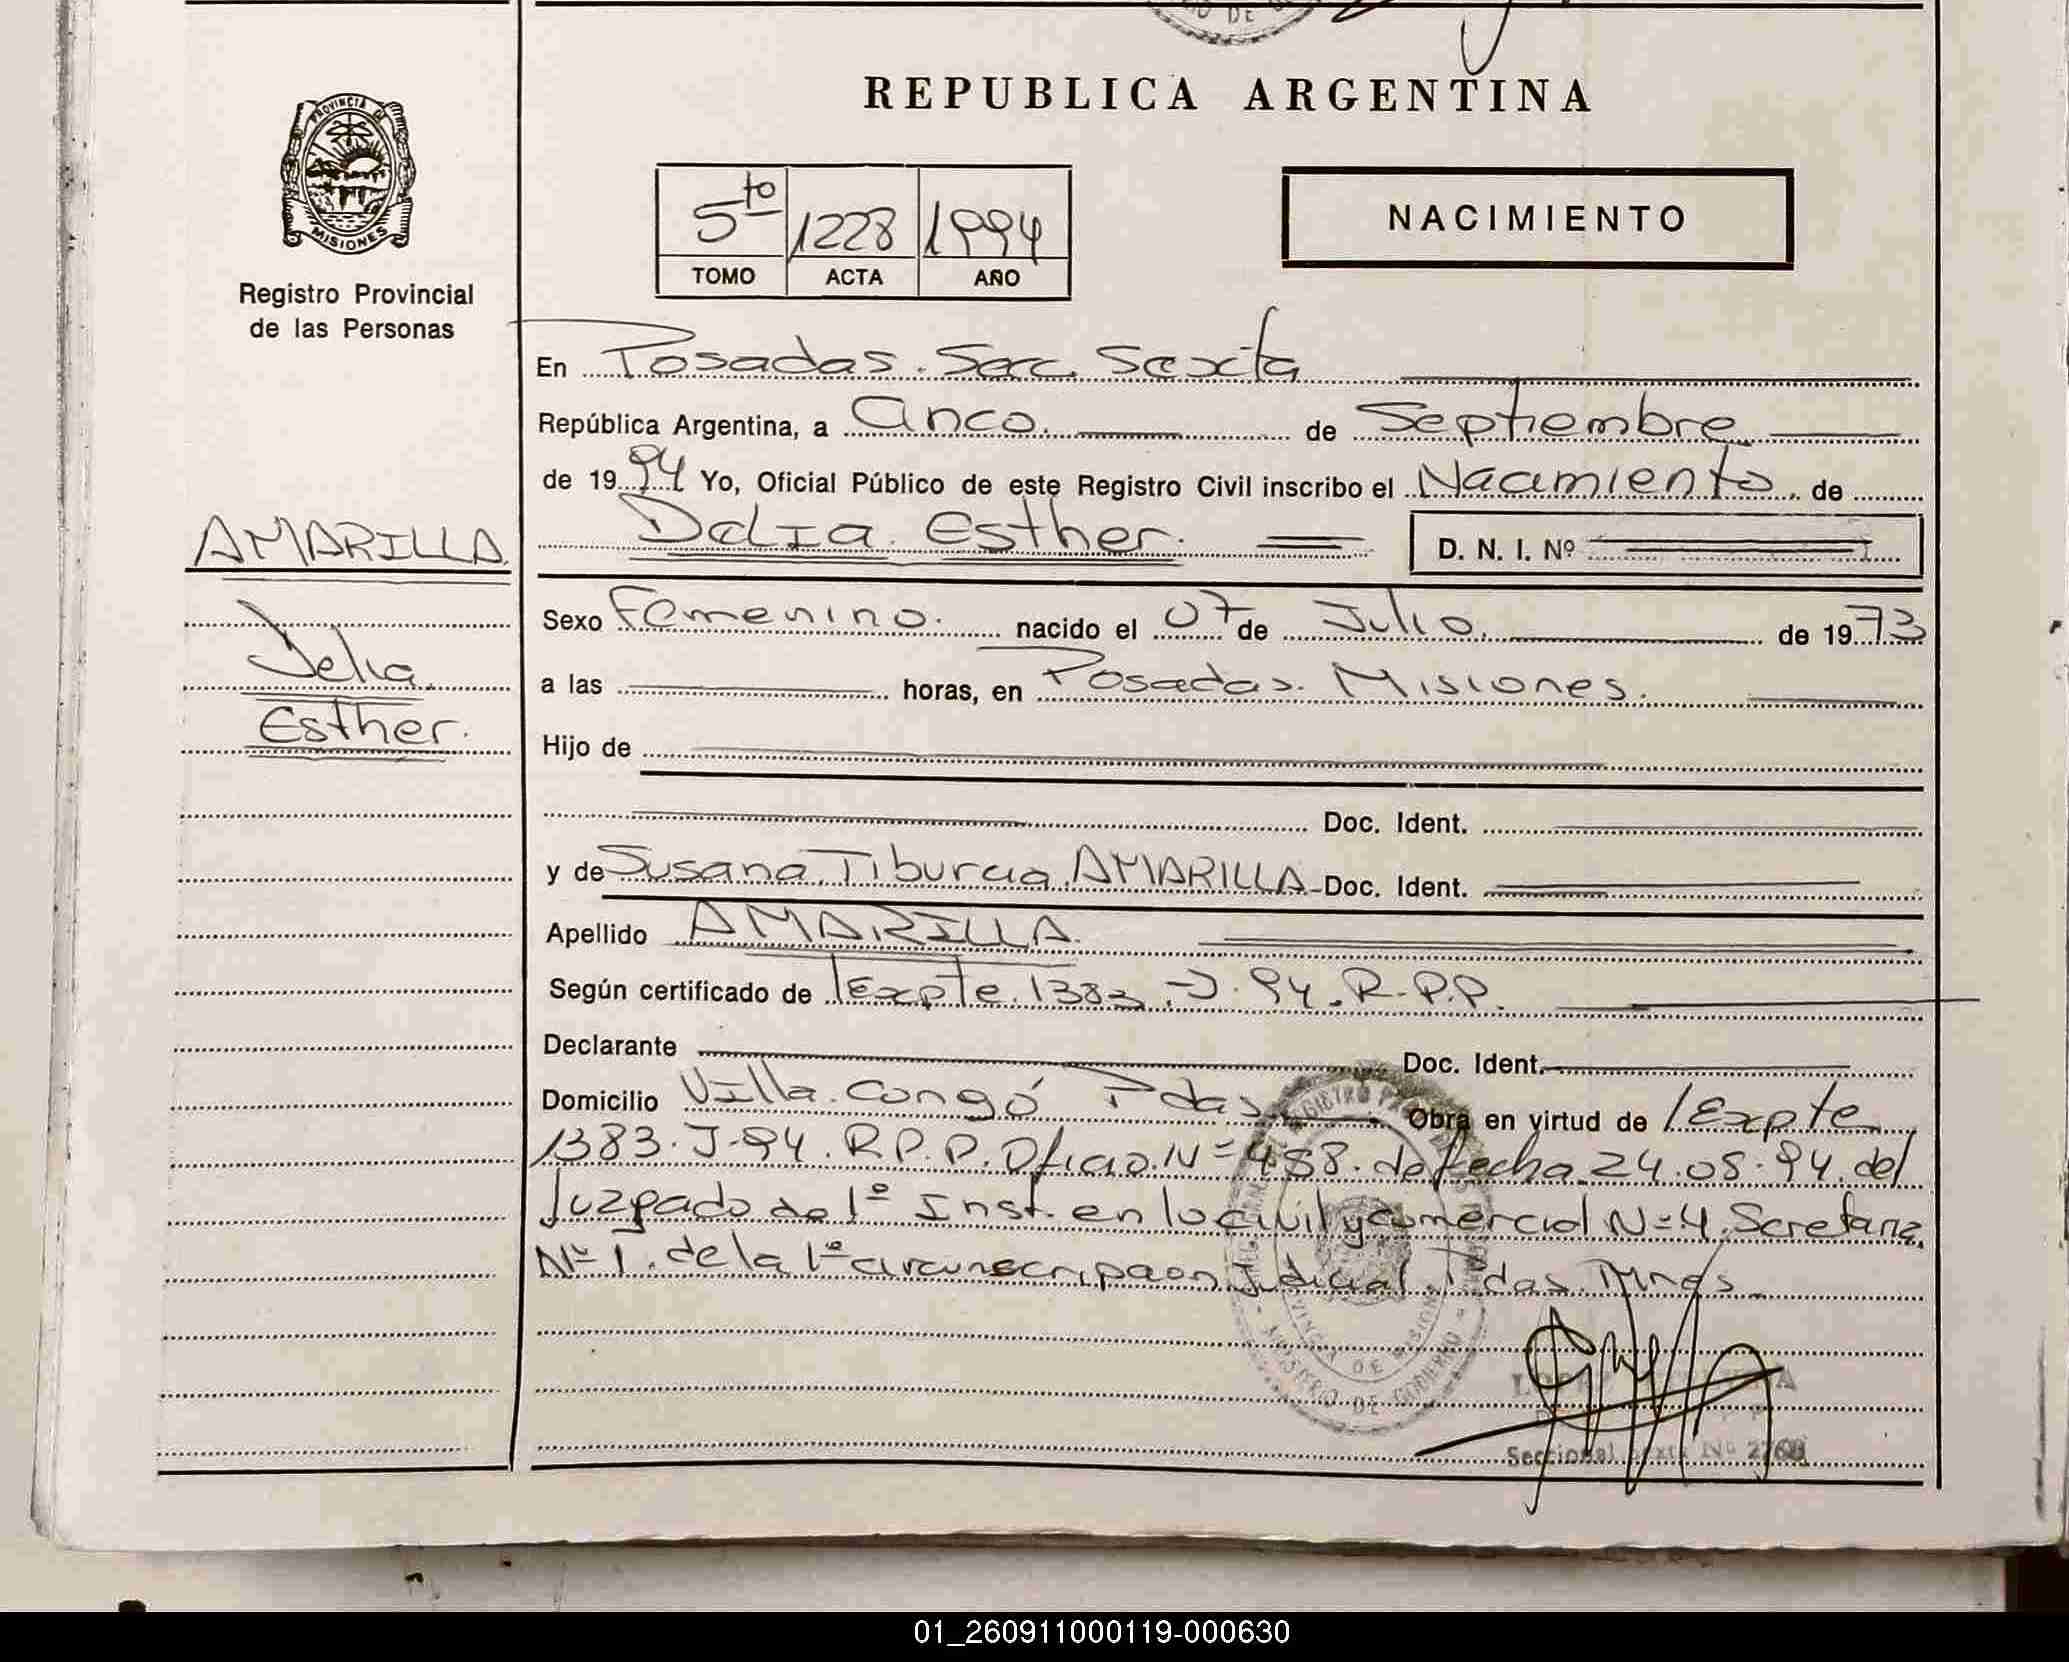 REPUBLICA ARGENTINA
PROVINCIA DE
MISIONES
Registro Provincial
de las Personas
5to 1228 1994
TOMO ACTA AÑO
NACIMIENTO
En Posadas. Secc. Sexta
República Argentina, a Cinco. de Septiembre
de 1994 Yo, Oficial Público de este Registro Civil inscribo el Nacimiento. de
AMARILLA
Delia
Esther.
Delia Esther. D. N. I. Nº
Sexo Femenino. nacido el 07 de Julio. de 1973
a las horas, en Posadas. Misiones.
Hijo de
Doc. Ident.
y de Susana Tiburcia AMARILLA Doc. Ident.
Apellido AMARILLA.
Según certificado de Expte. 1383.-J.94.R.P.P.
Declarante Doc. Ident.
Domicilio Villa Congó Pdas Obra en virtud de Expte
1383.J-94.R.P.P. Oficio. Nº 458. de fecha 24.08.94. del
Juzgado de 1º Inst. en lo civil y comercial Nº 4. Secretaria
Nº 1. de la 1º circunscripcion Judicial Pdas. Mnes
MINISTERIO DE GOBIERNO
Seccional Sexta Nº
01_260911000119-000630